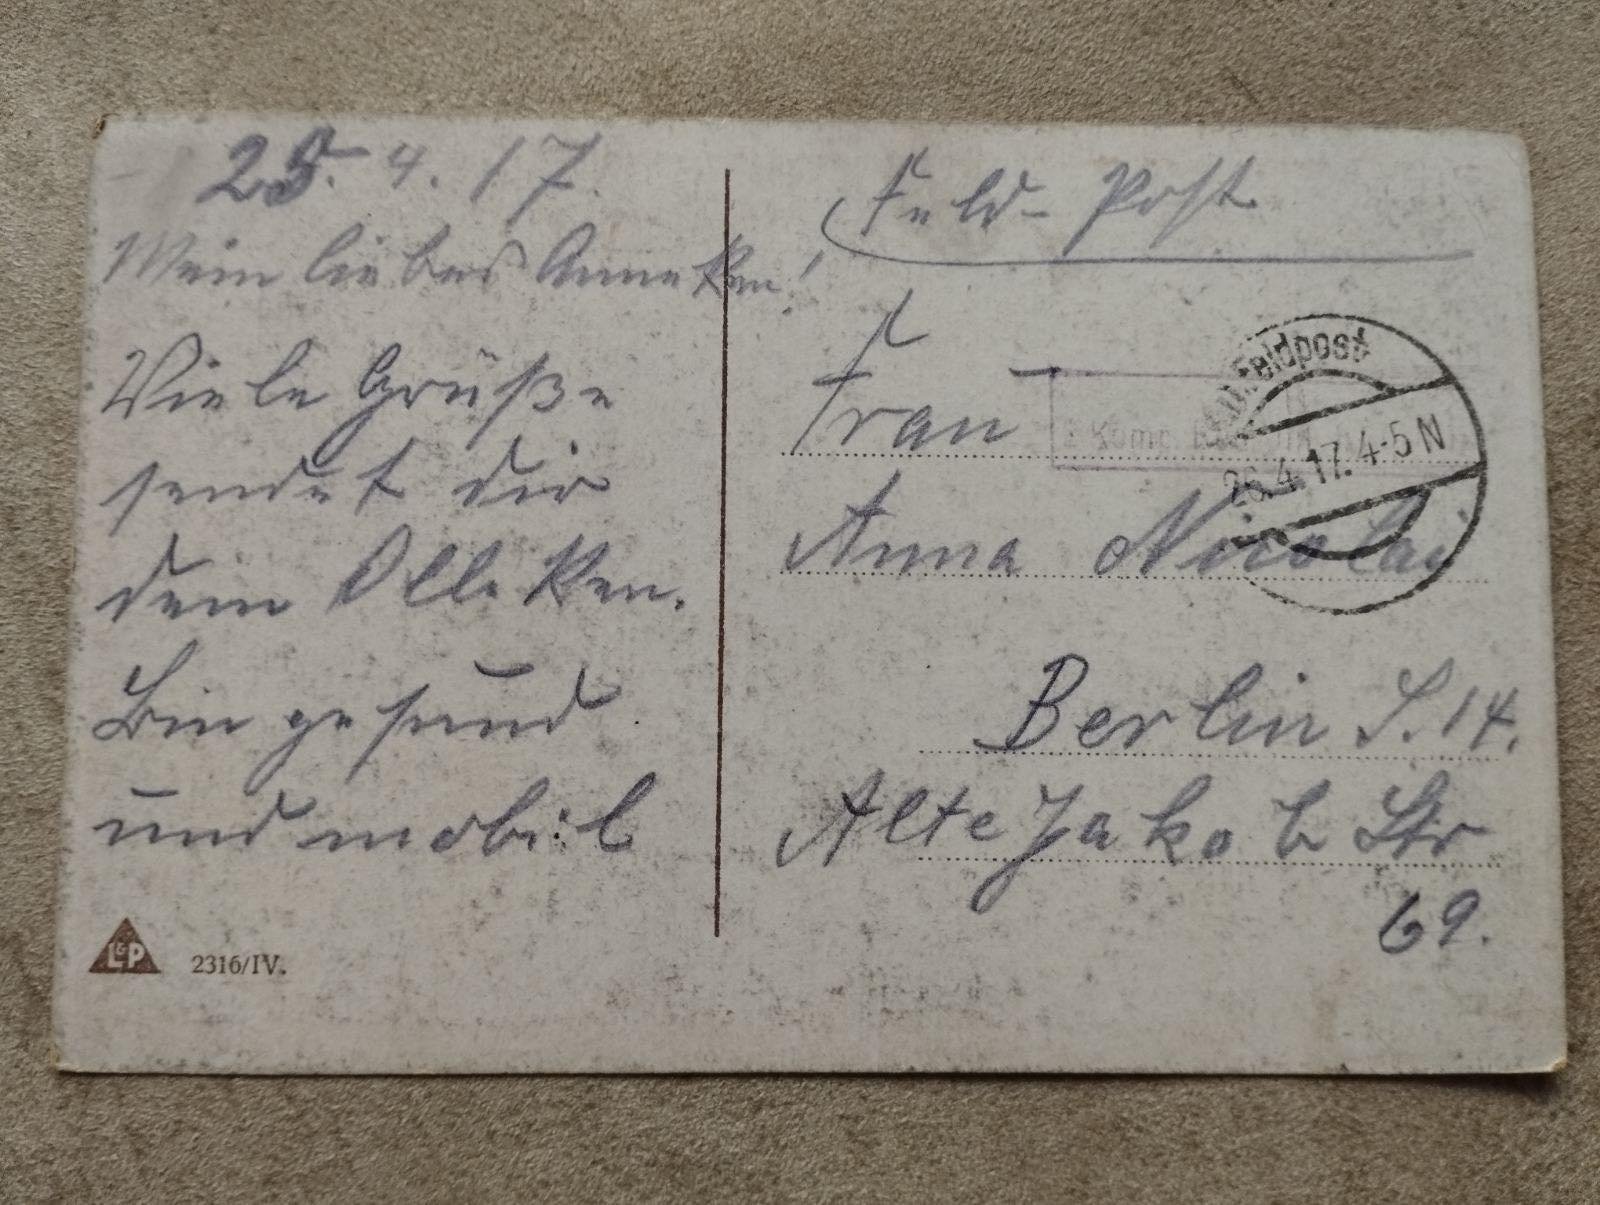 25.4.17.
Mein liebes Anneken!
Viele Grüße
sendet dir
dein Olleken.
Bin gesund
und mobil
L&P 2316/IV.
Feld-Post
Feldpost
26.4.17.4-5 N
Frau
Anna Nicolai
Berlin S.14.
Alte Jakob Str
69.